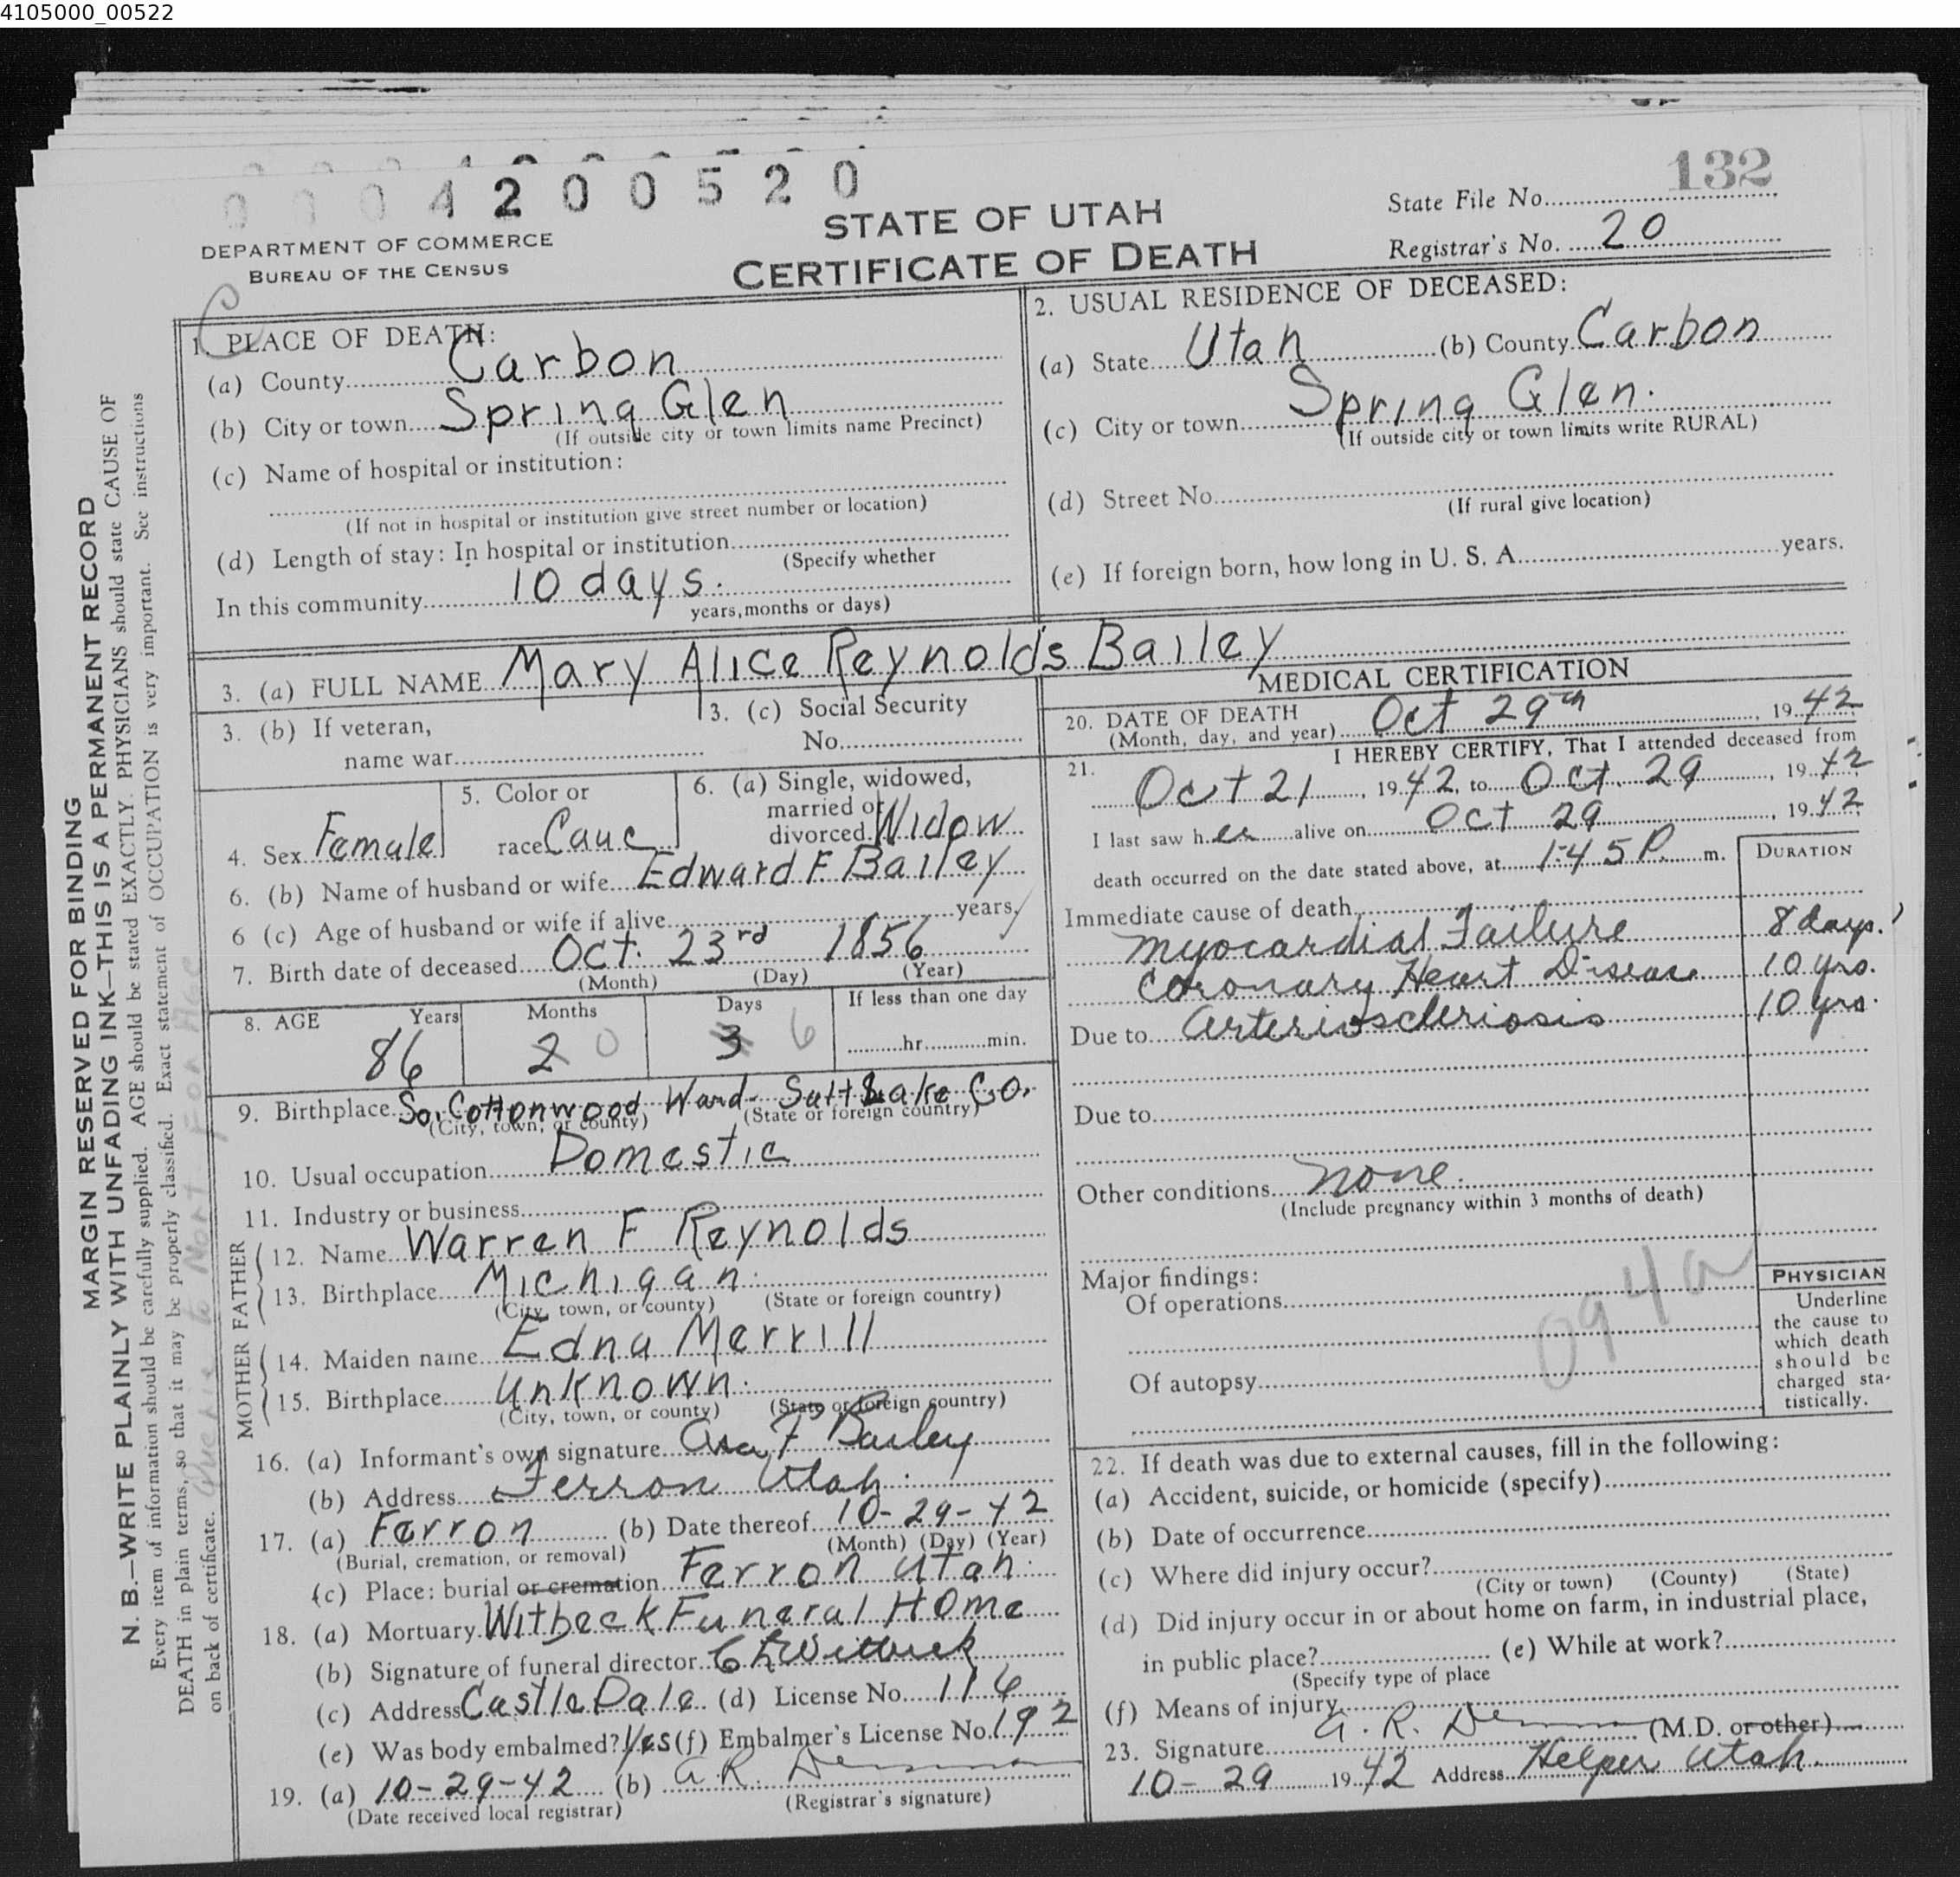 4105000_00522
0 0 0 4 2 0 0 5 2 0
132
STATE OF UTAH
CERTIFICATE OF DEATH
DEPARTMENT OF COMMERCE
BUREAU OF THE CENSUS
State File No.
Registrar's No. 20
C
1. PLACE OF DEATH:
(a) County Carbon
(b) City or town Spring Glen
(If outside city or town limits name Precinct)
(c) Name of hospital or institution:
(If not in hospital or institution give street number or location)
(d) Length of stay: In hospital or institution
(Specify whether
In this community 10 days.
years, months or days)
2. USUAL RESIDENCE OF DECEASED:
(a) State Utah (b) County Carbon
(c) City or town Spring Glen.
(If outside city or town limits write RURAL)
(d) Street No.
(If rural give location)
(e) If foreign born, how long in U. S. A. years.
3. (a) FULL NAME Mary Alice Reynolds Bailey
3. (b) If veteran,
name war
3. (c) Social Security
No.
4. Sex Female
5. Color or
race Cauc
6. (a) Single, widowed,
married or
divorced Widow
6. (b) Name of husband or wife Edward F. Bailey
6 (c) Age of husband or wife if alive years
7. Birth date of deceased Oct. 23rd 1856
(Month) (Day) (Year)
8. AGE Years Months Days If less than one day
86 2 0 3 6 hr. min.
9. Birthplace So. Cottonwood Ward - Salt Lake Co.
(City, town, or county) (State or foreign country)
10. Usual occupation Domestic
11. Industry or business
FATHER
12. Name Warren F Reynolds
13. Birthplace Michigan.
(City, town, or county) (State or foreign country)
MOTHER
14. Maiden name Edna Merrill
15. Birthplace Unknown.
(City, town, or county) (State or foreign country)
16. (a) Informant's own signature Asa F Bailey
(b) Address Ferron Utah.
17. (a) Ferron (b) Date thereof 10-29-42
(Burial, cremation, or removal) (Month) (Day) (Year)
(c) Place: burial or cremation Ferron Utah.
18. (a) Mortuary Witbeck Funeral Home
(b) Signature of funeral director Witbeck
(c) Address Castle Dale (d) License No. 116
(e) Was body embalmed? Yes (f) Embalmer's License No. 192
19. (a) 10-29-42 (b) A. R.
(Date received local registrar) (Registrar's signature)
MEDICAL CERTIFICATION
20. DATE OF DEATH
(Month, day, and year) Oct 29th, 1942
21. I HEREBY CERTIFY, That I attended deceased from
Oct 21, 1942, to Oct. 29, 1942
I last saw her alive on Oct 29, 1942
death occurred on the date stated above, at 1:45 P. m.
DURATION
Immediate cause of death
Myocardial Failure 8 days.
Coronary Heart Disease 10 yrs.
Due to Arterioscleriosis 10 yrs.
Due to
Other conditions None.
(Include pregnancy within 3 months of death)
Major findings:
Of operations
Of autopsy
094a
PHYSICIAN
Underline
the cause to
which death
should be
charged sta-
tistically.
22. If death was due to external causes, fill in the following:
(a) Accident, suicide, or homicide (specify)
(b) Date of occurrence
(c) Where did injury occur?
(City or town) (County) (State)
(d) Did injury occur in or about home on farm, in industrial place,
in public place? (e) While at work?
(Specify type of place
(f) Means of injury
23. Signature A. R. (M.D. or other)
10-29 1942 Address Helper Utah.
MARGIN RESERVED FOR BINDING
N. B.—WRITE PLAINLY WITH UNFADING INK—THIS IS A PERMANENT RECORD
Every item of information should be carefully supplied. AGE should be stated EXACTLY. PHYSICIANS should state CAUSE OF
DEATH in plain terms, so that it may be properly classified. Exact statement of OCCUPATION is very important. See instructions
on back of certificate.